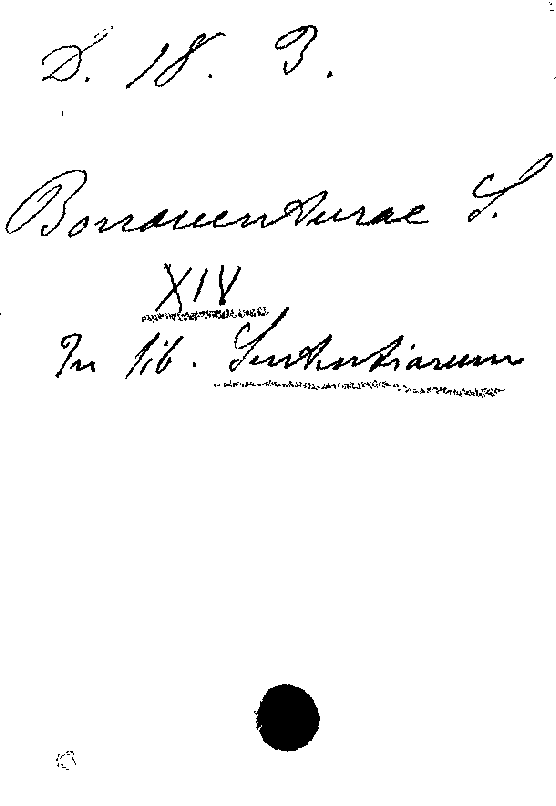 D. 18. 3.
Bonaventurae S.
XIV
In lib. Sententiarum